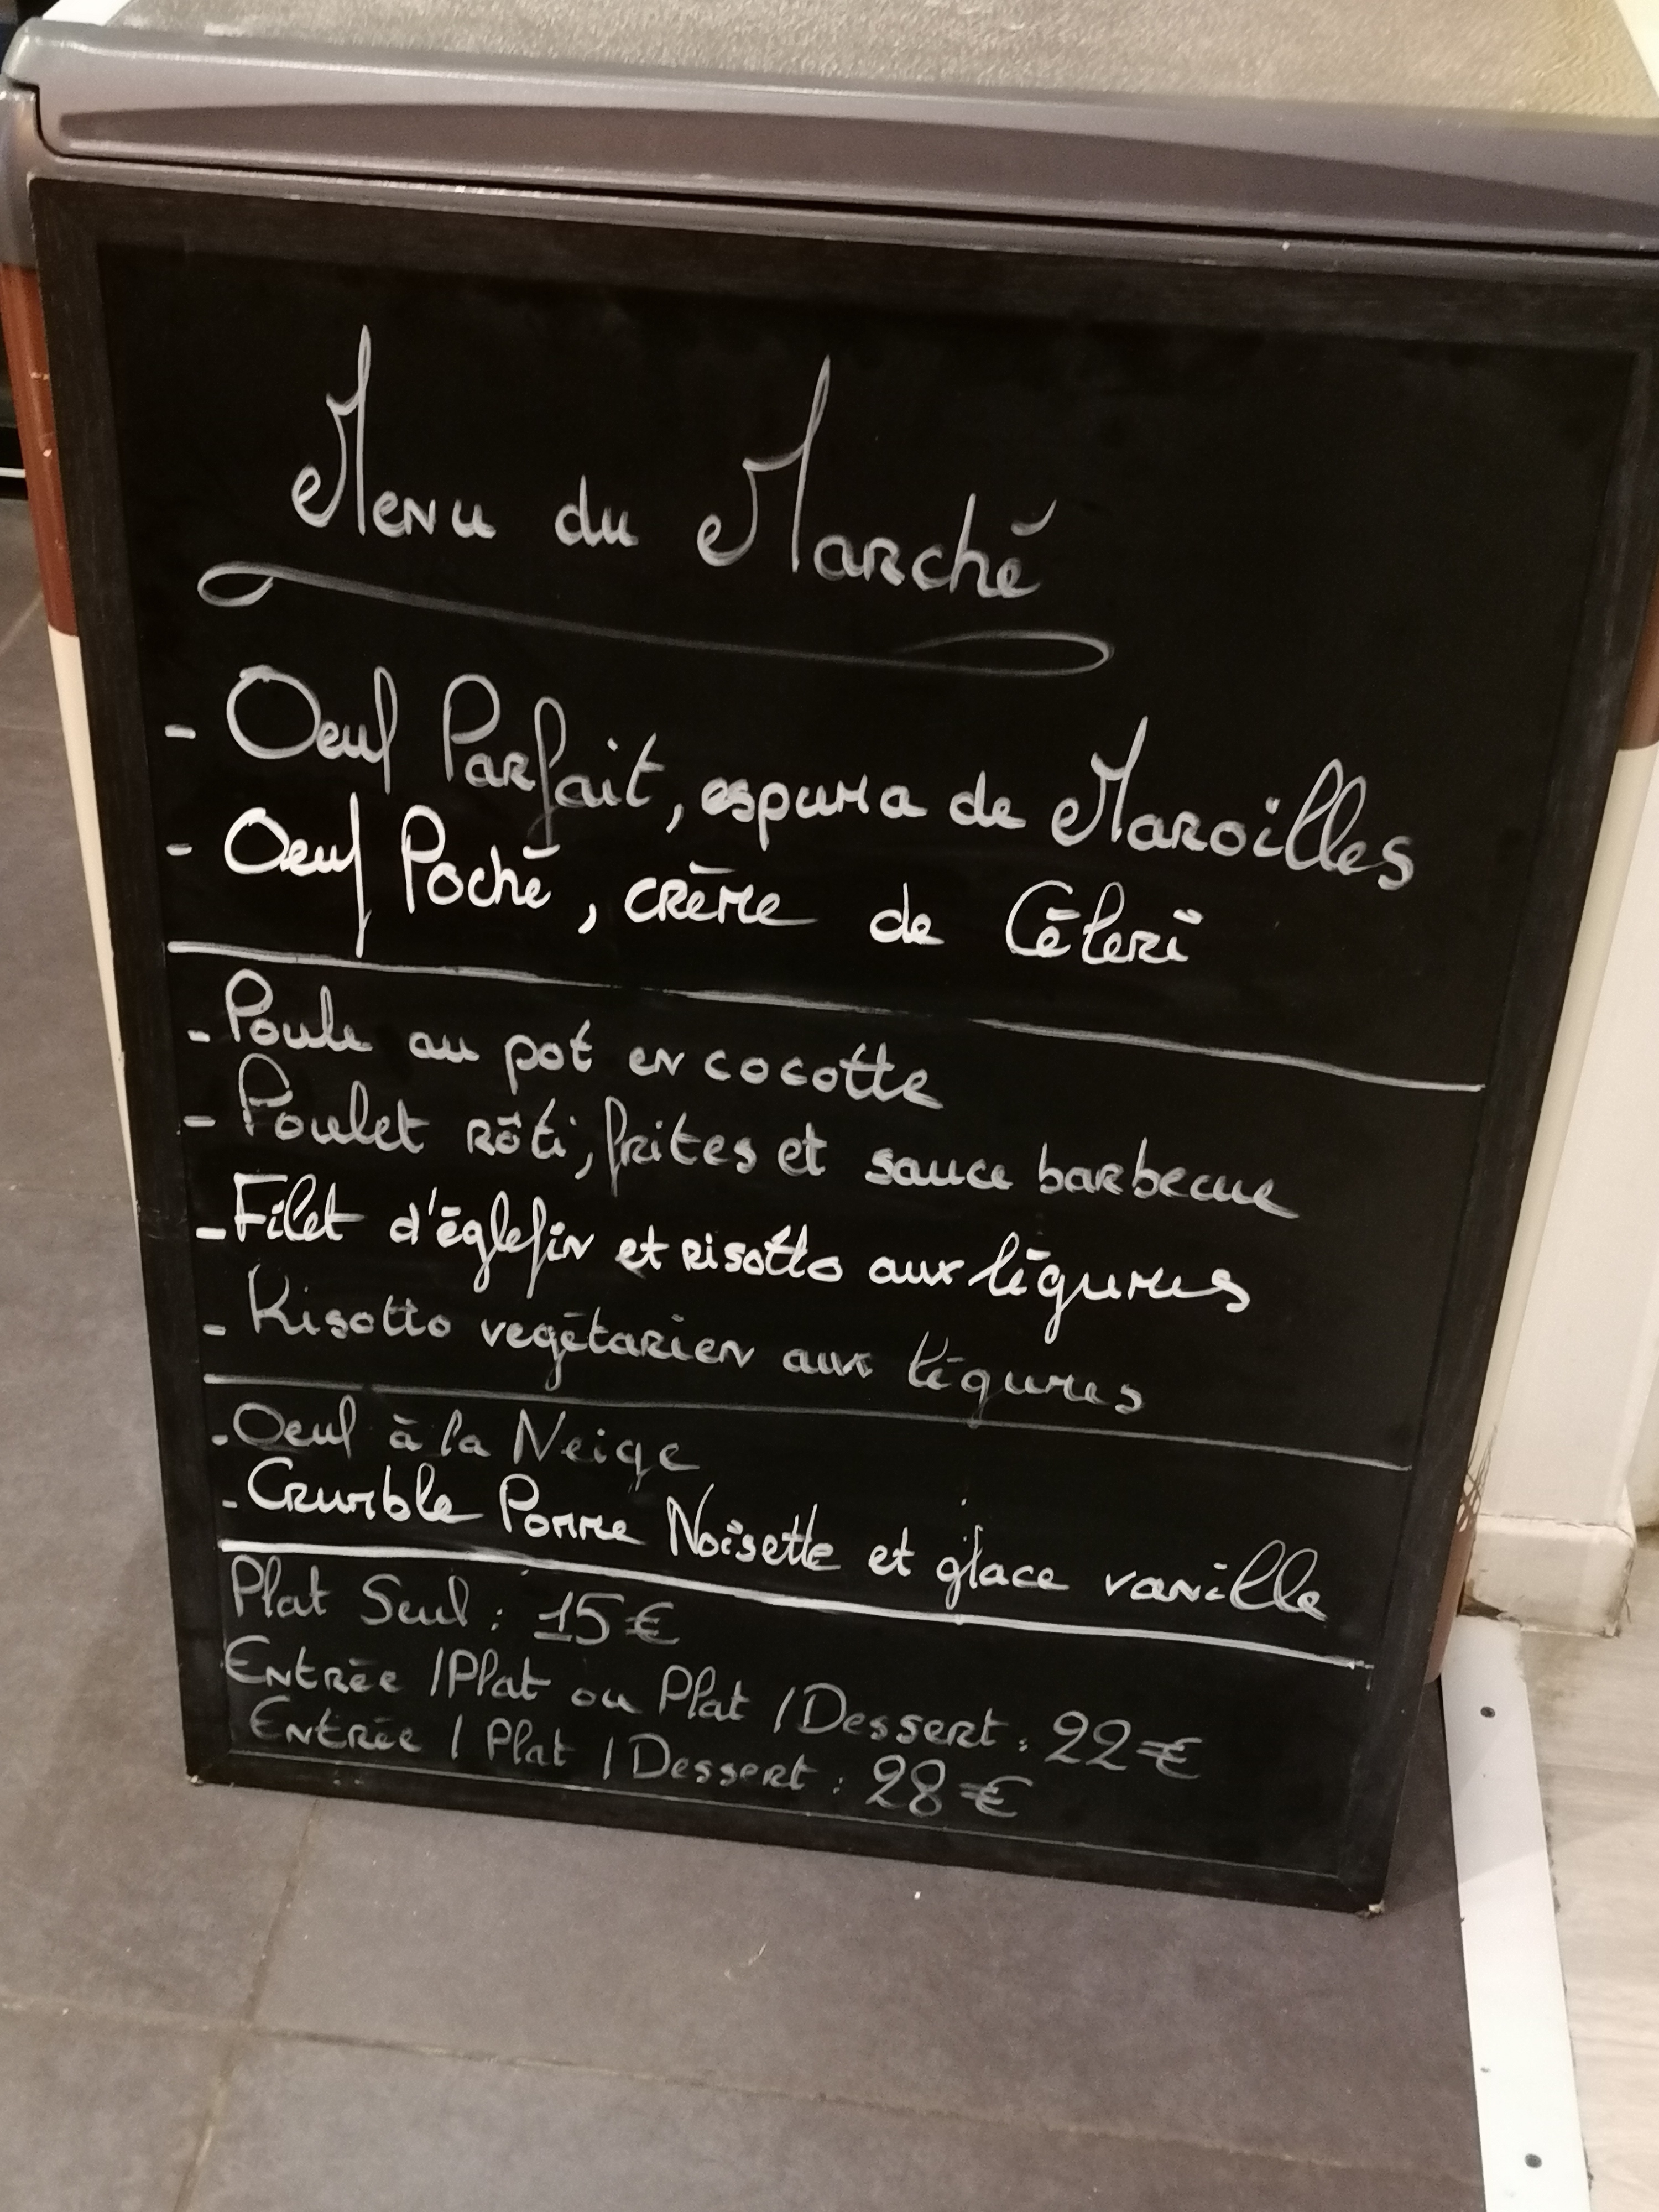 Menu du Marché
- Oeuf Parfait, espuma de Maroilles
- Oeuf Poché, crème de Céleri
- Poule au pot en cocotte
- Poulet rôti, frites et sauce barbecue
- Filet d'églefin et risotto aux légumes
- Risotto vegétarien aux légumes
- Oeuf à la Neige
- Crumble Pomme Noisette et glace vanille
Plat Seul : 15€
Entrée / Plat ou Plat / Dessert : 22€
Entrée / Plat / Dessert : 28€